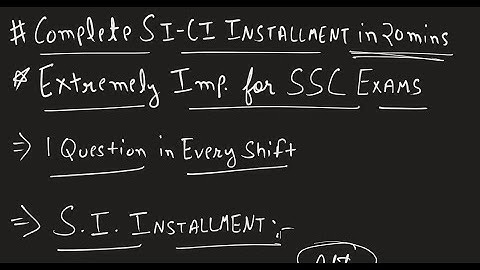 # Complete SI-CI Installment in 20 mins
* Extremely Imp. for SSC Exams
⇒ 1 Question in Every Shift
⇒ S.I. Installment:-